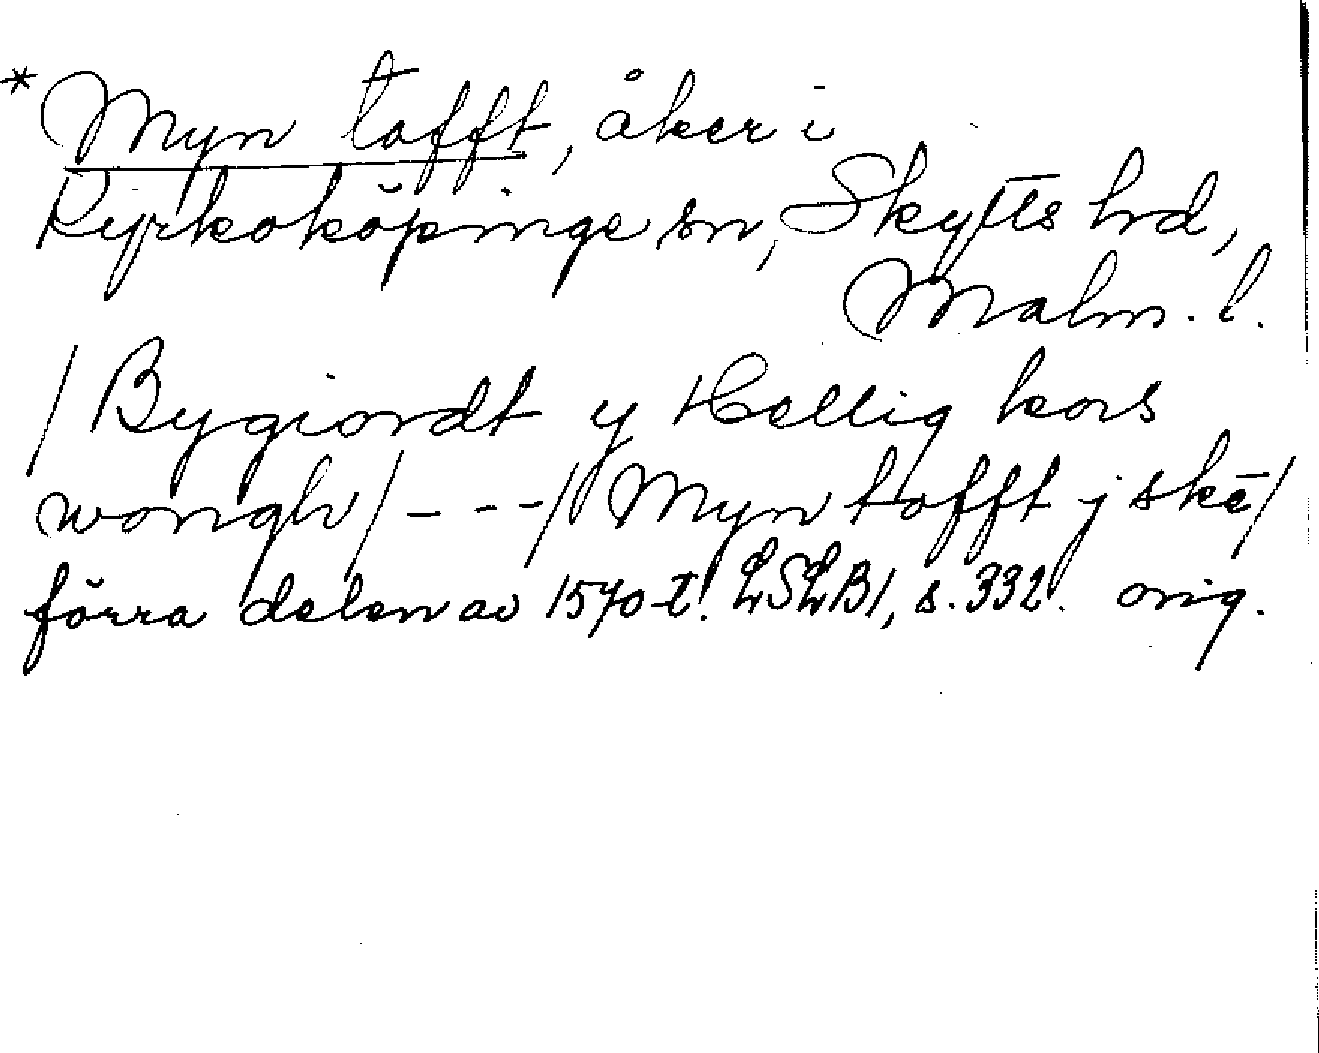 * Myn tofft, åker i
Kyrkoköpinge sn, Skytts hd,
Malm. l.
/ Bygiordt y Hellig kors
wongh / - - - / Myn tofft j skē /
förra delen av 1570-t. LSLB1, s. 332. orig.